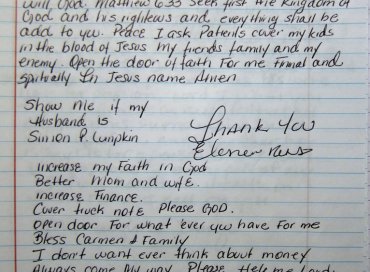 will God. Matthew 6:33 Seek first the Kingdom of
God and his rightews and everything shall be
add to you. Peace I ask Patients cover my kids
in the blood of Jesus my friends family and my
enemy. Open the door of faith For me Finnal and
spiritually In Jesus name Amen
Show Me if my
Husband is
Simion P. Lumpkin
Thank You
increase my Faith in God
Better Mom and wife.
increase Finance.
Cover truck note Please GOD.
open door For what ever you have For me
Bless Carmen & Family
I don't want ever think about money
Always come my way. Please Help me Lord